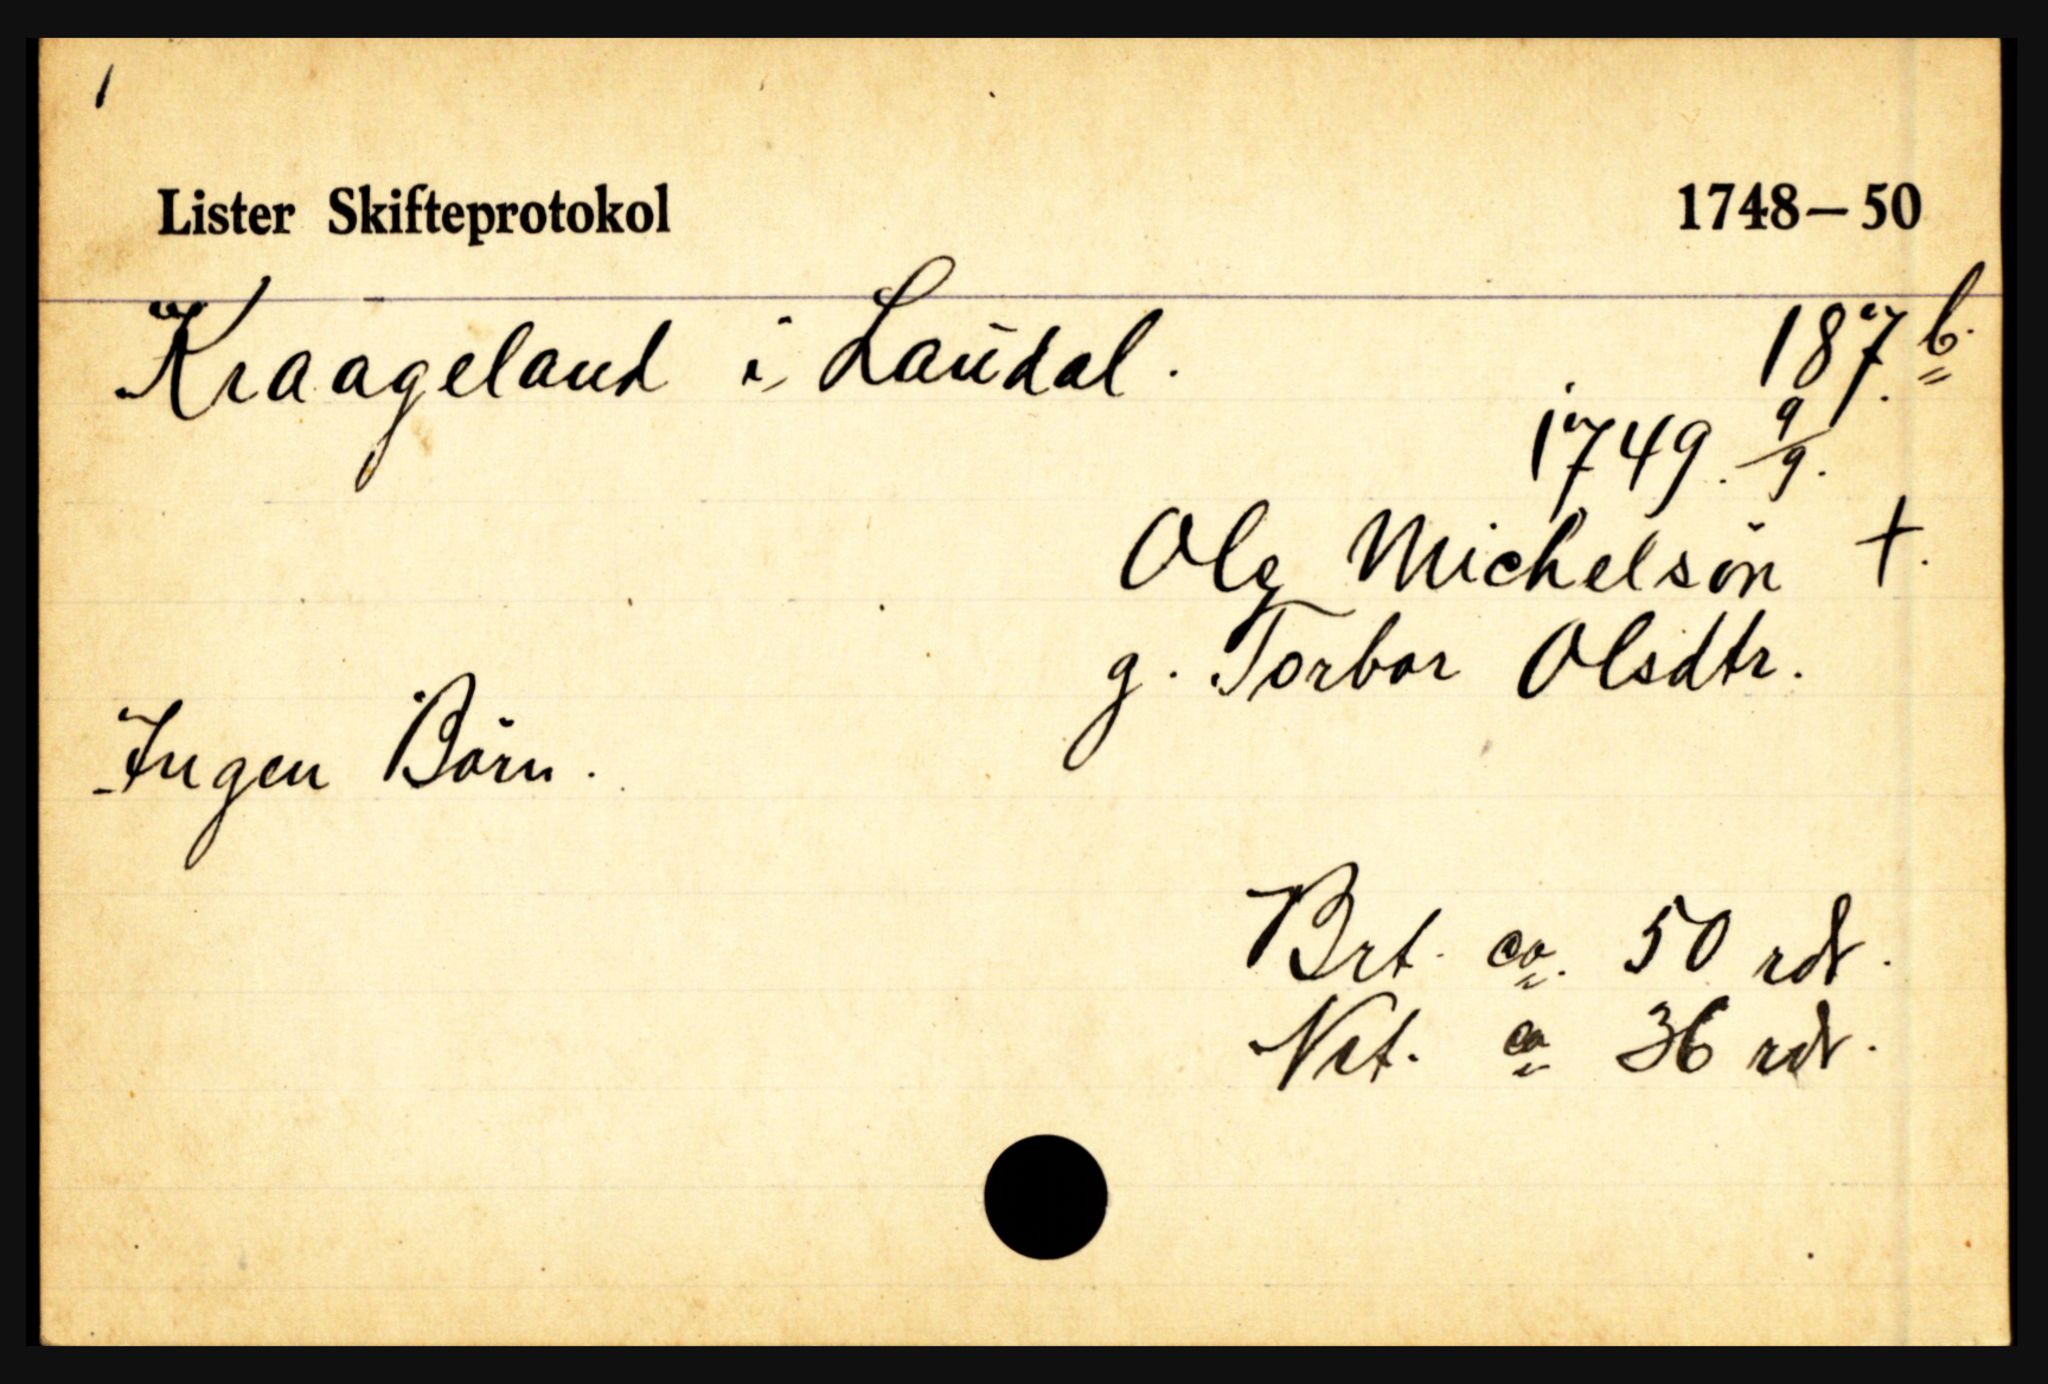 1
Lister Skifteprotokol 1748-50
Kraageland i Laudal. 187 b.
1749. 9/9.
Ole Michelsön †.
g. Torbor Olsdtr.
Ingen Börn.
Brt. ca. 50 rdr.
Net. ca 36 rdr.